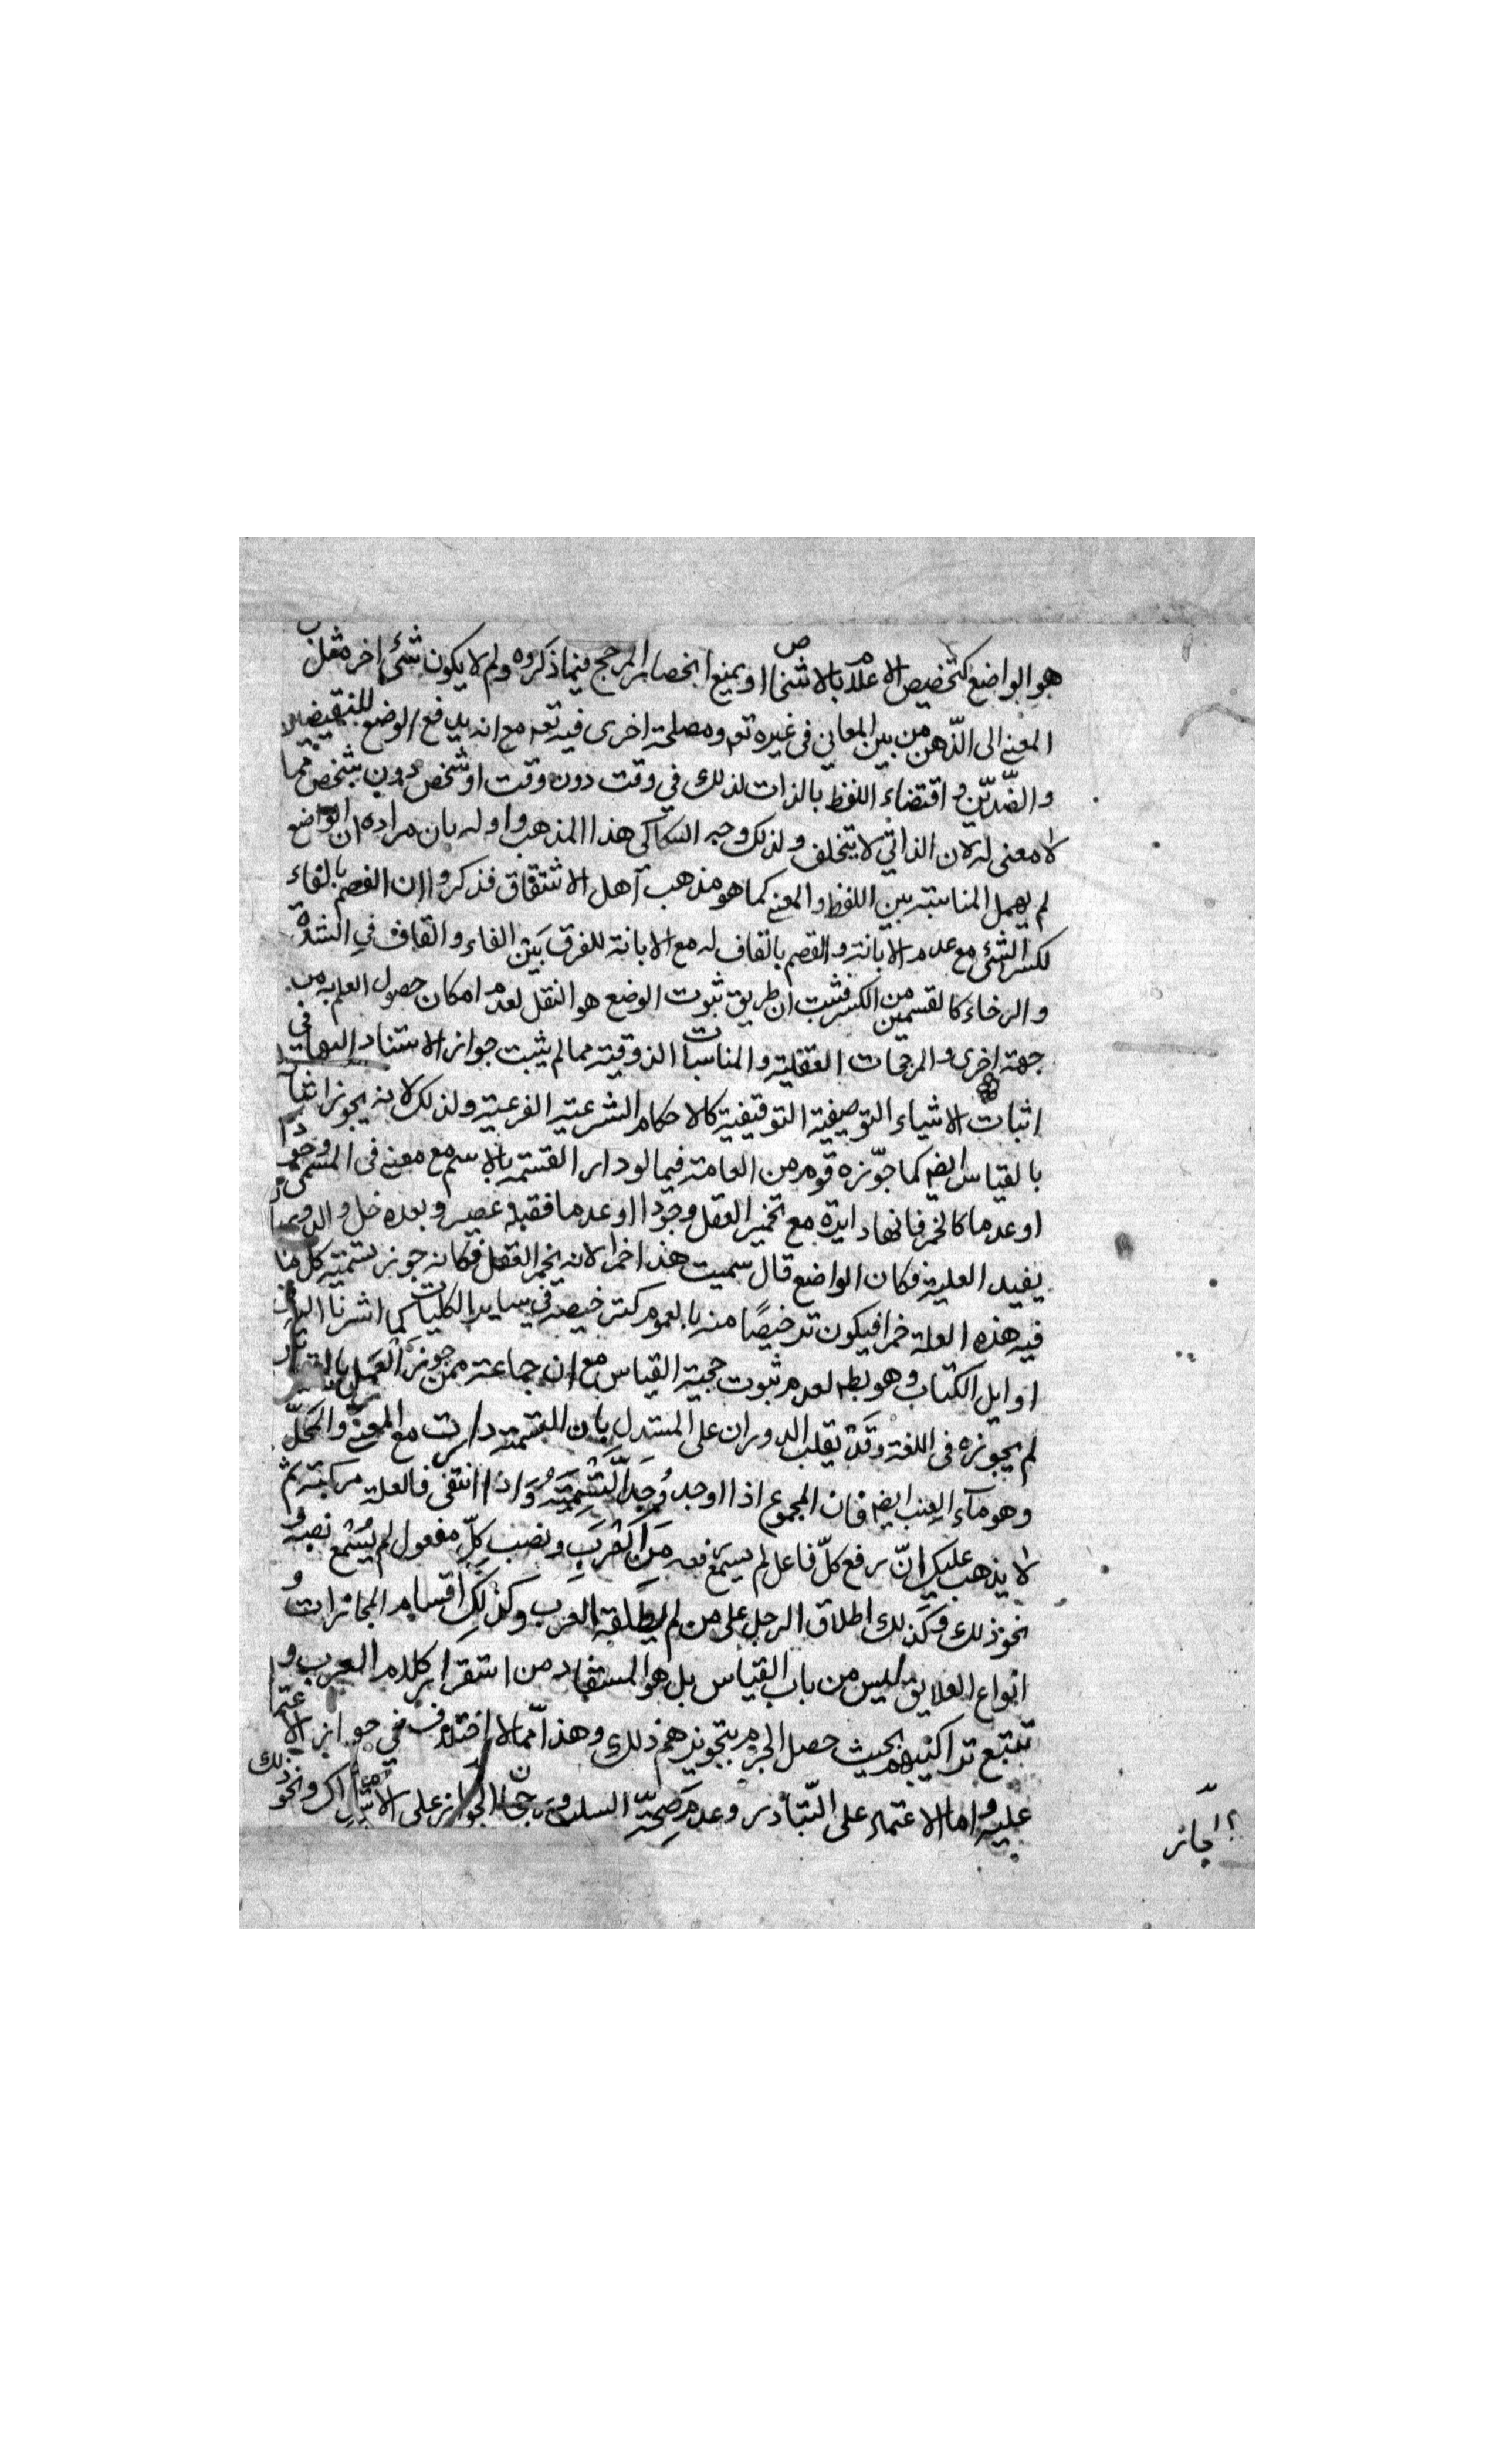 هو الواضع كتخصيص الاعلام بالاشخاص او بمنع انحصار المرجح فيما ذكروه ولم لا يكون شئ اخر مثل
المعنى الى الذّهن من بين المعاني في غيره تعم ومصلحة اخرى فيه تعم مع انه يدفع الوضع للنقيضين
والضّدين و اقتضاء اللفظ بالذات لذلك في وقت دون وقت او شخص دون شخص مما
لا معنى له لان الذاتي لا يتخلف ولذلك وجه السكاكي هذا المذهب واوله بان مراده ان الواضع
لم يهمل المناسبة بين اللفظ والمعنى كما هو مذهب اهل الاشتقاق فذكروا ان الفصم بالفاء
لكسر الشئ مع عدم الابانة والقصم بالقاف له مع الابانة للفرق بين الفاء والقاف في الشدة
والرخاء كالقسمين من الكسر فثبت ان طريق ثبوت الوضع هو النقل لعدم امكان حصول العلم به من
جهة اخرى والمرجحات العقلية والمناسبات الذوقية مما لم يثبت جواز الاستناد اليها في
اثبات الاشياء التوصيفية التوقيفية كالاحكام الشرعية الفرعية ولذلك لا نه يجوز اثبا
بالقياس ايضا كما جوّزه قوم من العامة فيما لو دار التسمية بالاسم مع معنى في المسمى وجودا
او عدما كالخمر فانها دايرة مع تخمير العقل وجودا او عدما فقبله عصير وبعده خل والدوران
يفيد العلية فكان الواضع قال سميت هذا خمرا لانه يخمر العقل فكانه جوز تسمية كل ما
فيه هذه العلة خمرا فيكون ترخيصًا منه بالعموم كترخيصه في ساير الكليات كما اشرنا اليه في
اوايل الكتاب وهو بط لعدم ثبوت حجية القياس مع ان جماعة ممن جوز العمل بالقياس
لم يجوزه في اللغة وقد يقلب الدوران على المستدل بان التسمية دارت مع المعنى والمحلّ
وهو مآء العنب ايضا فان المجموع اذا وجد وُجد التّسمية واذا انتفى فالعلة مركبة ثم
لا يذهب عليك انّ رفع كلّ فاعل لم يسمع رفعه من العرب ونصب كلّ مفعول لم يسمع نصبه و
نحو ذلك وكذلك اطلاق الرجل على من لم يطلقه العرب وكذلك اقسام المجازات و
انواع العلايق ليس من باب القياس بل هو المستفاد من استقراء كلام العرب و
تتبع تراكيبهم بحيث حصل الجزم بتجويزهم ذلك وهذا مما لا اختلاف في جواز الاعتماد
عليه واما الاعتماد على التّبادر وعدم صحّة السلب ورجحان المجاز على الاشتراك ونحو ذلك
المجاز